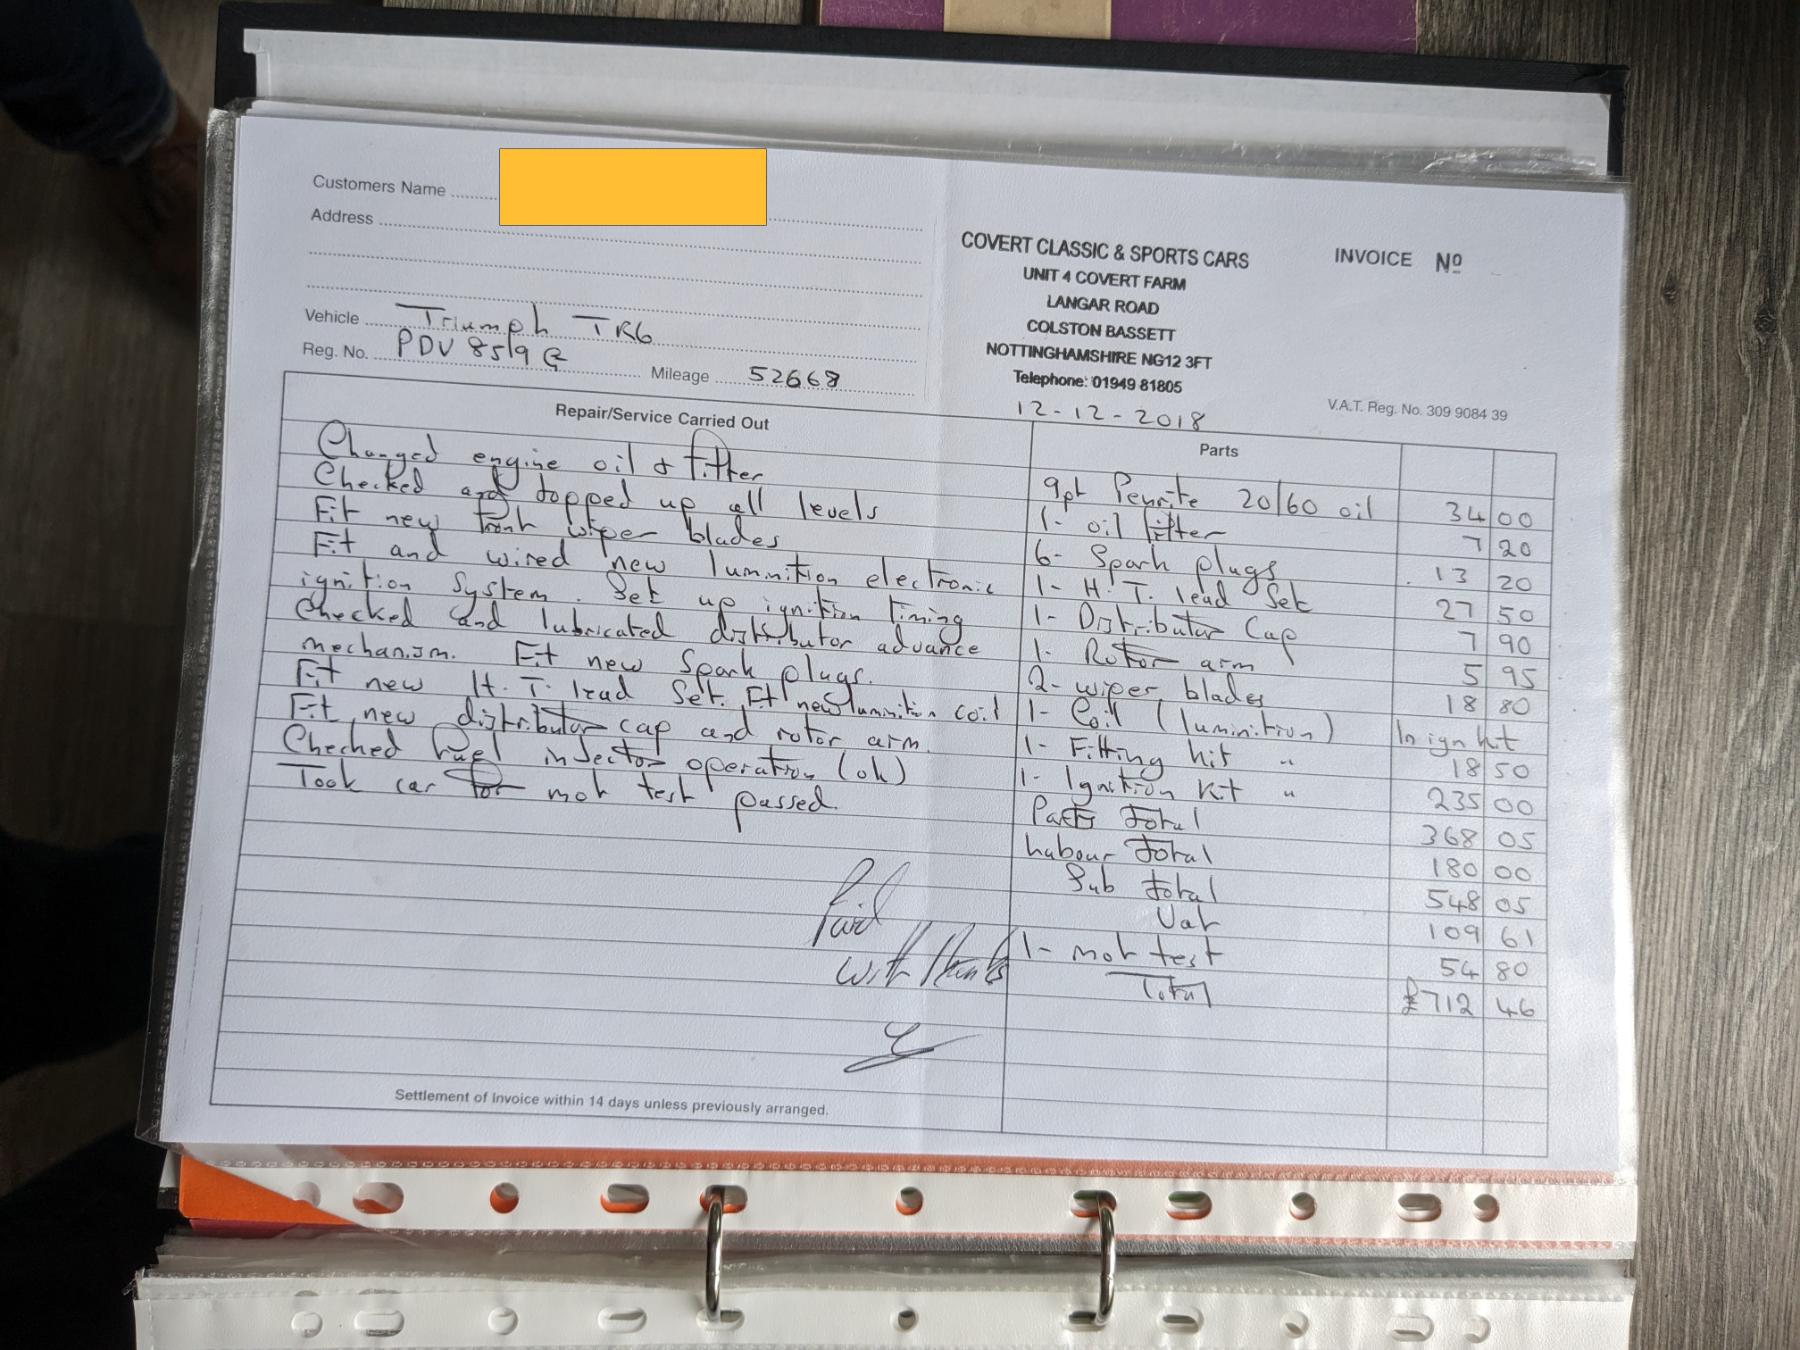 Customers Name
Address
COVERT CLASSIC & SPORTS CARS
UNIT 4 COVERT FARM
LANGAR ROAD
COLSTON BASSETT
NOTTINGHAMSHIRE NG12 3FT
Telephone: 01949 81805
INVOICE Nº
Vehicle Triumph TR6
Reg. No. PDV 859 G Mileage 52668
12-12-2018
V.A.T. Reg. No. 309 9084 39
Repair/Service Carried Out
Changed engine oil & filter
Checked and topped up all levels
Fit new front wiper blades
Fit and wired new luminition electronic
ignition system. Set up ignition timing
Checked and lubricated distributor advance
mechanism. Fit new Spark plugs.
Fit new H.T. lead Set. Fit new luminition coil
Fit new distributor cap and rotor arm.
Checked fuel injector operation (ok)
Took car for mot test passed.
Parts
9pt Penrite 20/60 oil 34 00
1- oil filter 7 20
6- Spark plugs 13 20
1- H.T. lead Set 27 50
1- Distributor Cap 7 90
1- Rotor arm 5 95
2- wiper blades 18 80
1- Coil (luminition) In ign kit
1- Fitting kit " 18 50
1- Ignition Kit " 235 00
Parts total 368 05
Labour total 180 00
Sub total 548 05
Vat 109 61
1- mot test 54 80
Total £712 46
Paid
with thanks
Settlement of Invoice within 14 days unless previously arranged.